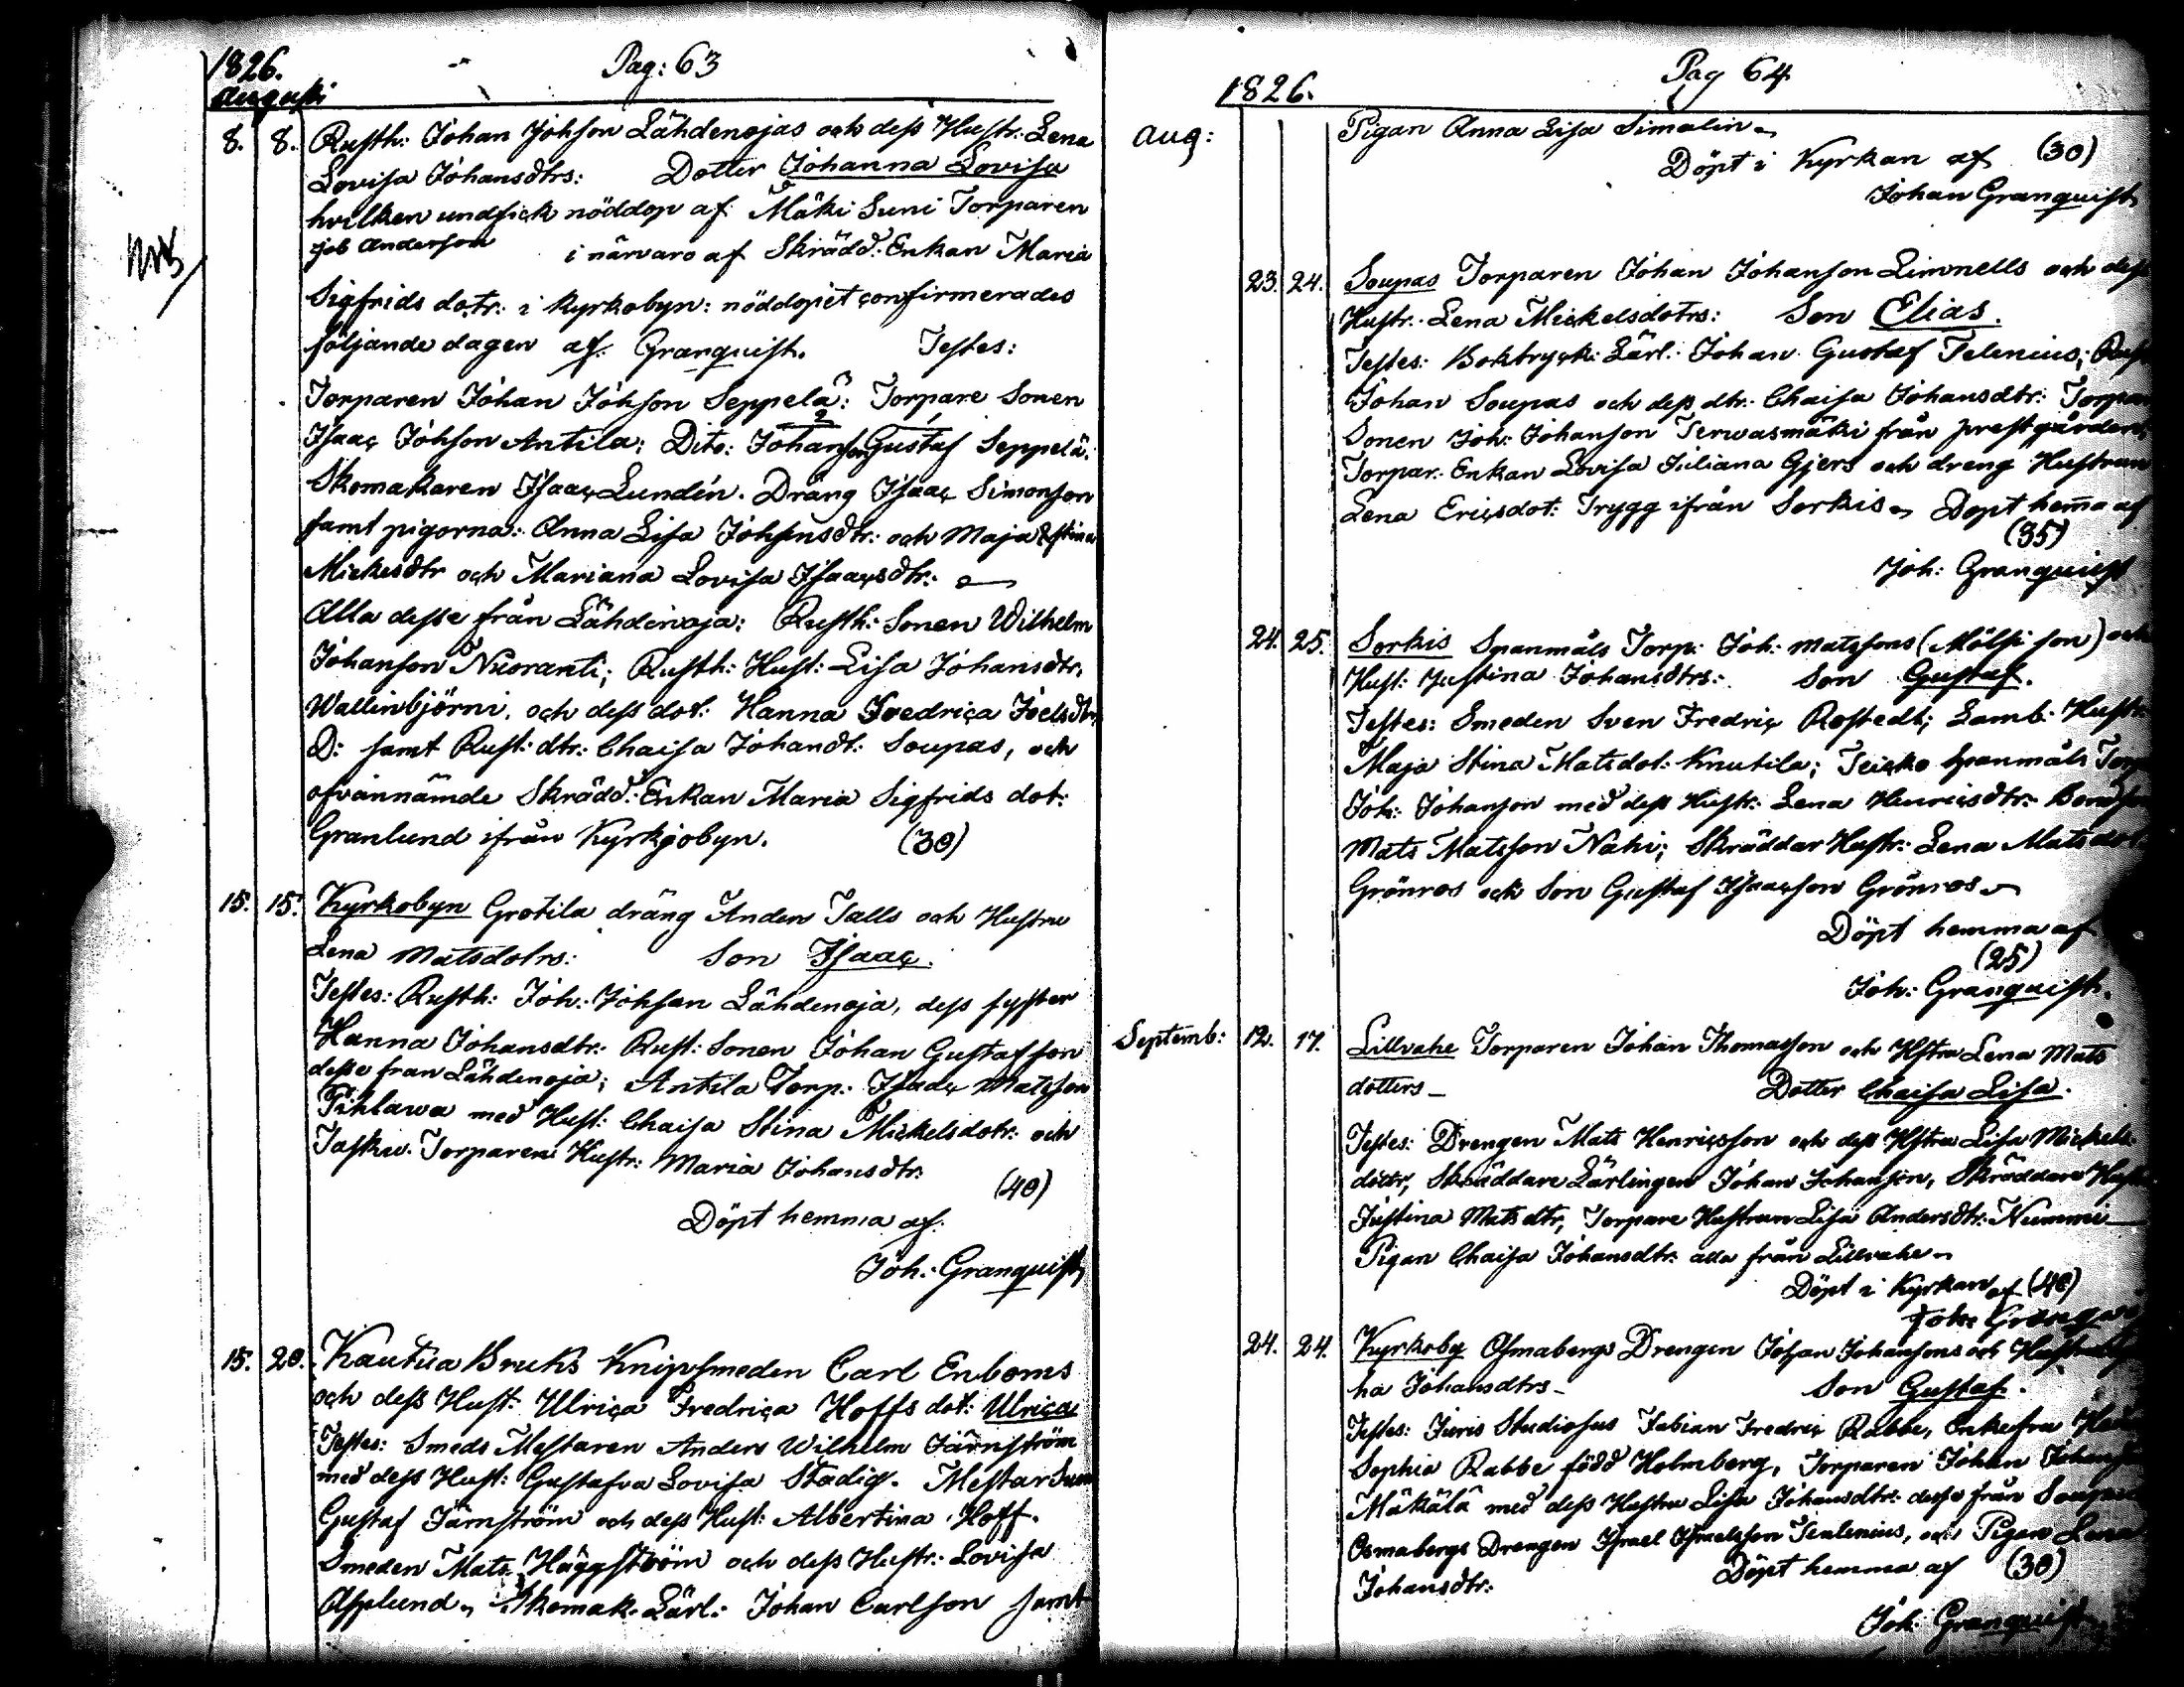 1826. Pag: 63
Augusti
8. 8. Rusth: Johan Johsson Lähdenojas och dess Hustr: Lena
Lovisa Johansdtrs: Dotter Johanna Lovisa
hvilken undfick nöddop af Mäki Suni Torparen
Job Andersson i närvaro af Skrädd: Enkan Maria
NB
Sigfrids dotr: i kyrkobyn: nöddopet confirmerades
följande dagen af: Granquist. Testes:
Torparen Johan Johsson Seppelä: Torpare Sonen
Isaac Johsson Antila: Dito: Johansson Gustaf Seppelä:
Skomakaren Isaac Lundén. Dräng Isaac Simonsson
samt pigorna: Anna Lisa Johsensdtr: och Maja Stina
Mickesdtr och Mariana Lovisa Isaacsdtr:
Alla desse från Lähdinoja: Rusth: Sonen Wilhelm
Johanson Nuoranti; Rusth: Hust: Lisa Johansdtr.
Wallinbjörni, och dess dot: Hanna Fredrica Joelsdtr
D: samt Rust: dtr: Chaisa Johandt: Soupas, och
ofvannämde Skrädd: Enkan Maria Sigfrids dot:
Granlund ifrån Kyrkjobyn. (30)
15. 15. Kyrkobyn Grotila dräng Anders Talls och Hustru
Lena Matsdotrs: Son Isaac.
Testes: Rusth: Joh: Johsson Lähdenoja, dess syster
Hanna Johansdtr: Rust: Sonen Johan Gustafsson
desse fran Lähdenoja; Antila Torp: Isaac Matsson
Pihlawa med Hust: Chaisa Stina Mickelsdotr: och
Torparens Hustr: Maria Johansdtr:
(40)
Döpt hemma af:
Joh: Granquist
15. 20. Kautua Bruks Knipsmeden Carl Enboms
och dess Hust: Ulrica Fredrica Hoffs dot: Ulrica
Testes: Smeds Mestaren Anders Wilhelm Järnström
med dess Hust: Gustafva Lovisa Stadig. Mestar
Gustaf Järnström och dess Hust: Albertina Hoff.
Smeden Mats Häggström och dess Hustr: Lovisa
Asplund, Skomak. Lärl: Johan Carlson samt
Pag 64
1826.
Aug: Pigan Anna Lisa Simalin
Döpt i Kyrkan af (30)
Johan Granquist
23. 24. Soupas Torparen Johan Johanson Linnells och dess
Hustr: Lena Mickelsdotrs: Son Elias.
Testes: Boktryck: Lärl: Johan Gustaf Telenius;
Johan Soupas och dess dtr: Chaisa Johansdtr: Torpar
Sonen Joh: Johanson Terwasmäki från prestgården;
Torpar. Enkan Lovisa Juliana Gjers och dreng Hustrun
Lena Ericsdot: Trygg ifrån Sorkis Dopt hema af
(35)
Joh: Granquist
24. 25. Sorkis Spanmåls Torp: Joh: Matssons (Mölsi son) och
Hust: Justina Johansdtrs: Son Gustaf.
Testes: Smeden Sven Fredric Rostedt; Lamb: Hustr:
Maja Stina Matsdot: Knutila; Teicko Spanmåls Torp
Joh: Johanson med dess Hustr: Lena Henricsdtr:
Mats Matsson Nahi; Skräddar Hustr: Lena Matsdot:
Grönros och Son Gustaf Isaacson Grönros
Döpt hemma af
(25)
Joh: Granquist.
Septemb: 12. 17. Lillvahe Torparen Johan Thomasson och Hstru Lena Mats
dotters Dotter Chaisa Lisa.
Testes: Drengen Mats Henricsson och dess Hstru Lisa Mickels
dotter, Skräddare Lärlingen Johan Johanson, Skräddare
Justina Matsdtr, Torpare Hustrun Lisa Andersdtr: Nummi
Pigan Chaisa Johansdtr: alla från Lillvahe
Döpt i Kyrkan af (40)
24. 24. Kyrkoby Osmabergs Drengen Johan Johansons och
na Johansdtrs Son Gustaf.
Testes: Juris Studiosus Fabian Fredric Rabbe, Enkefru
Sophia Rabbe född Holmberg, Torparen Johan
Mäkälä med dess Hustru Lisa Johansdtr: desse från
Osmabergs Drengen Israel Ismelsson Tenlenius, och Pigan Lena
Johansdtr: Döpt hemma af (30)
Joh: Granquist